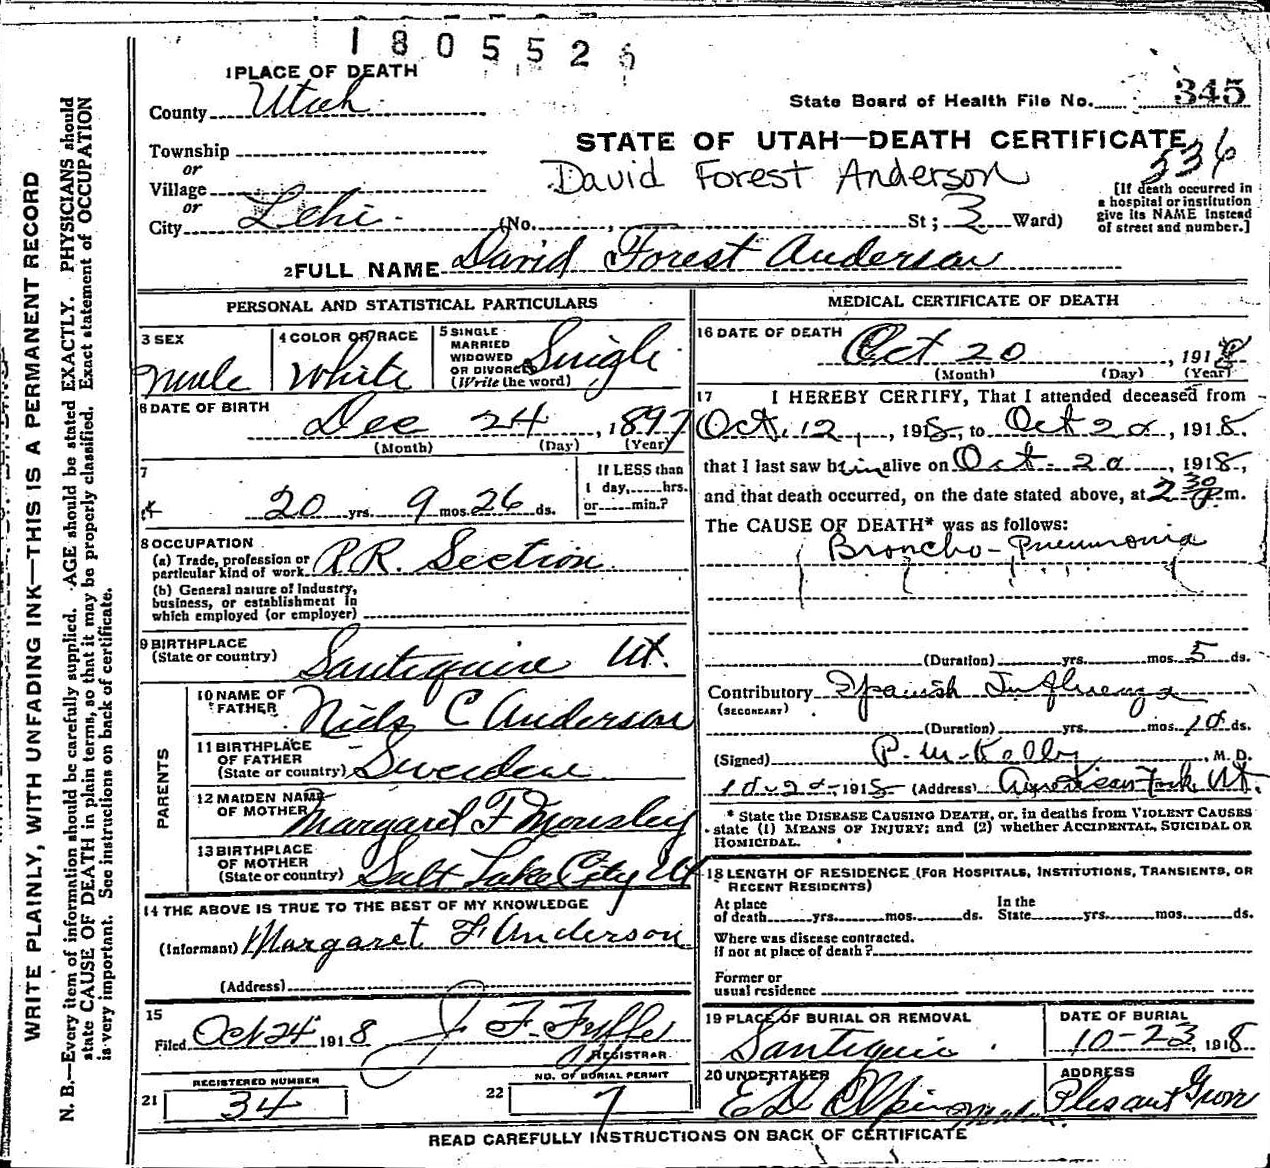 180552
1 PLACE OF DEATH
County Utah
State Board of Health File No. 345
STATE OF UTAH—DEATH CERTIFICATE
336
Township
or
Village
or
City Lehi
David Forest Anderson
(No. , St; 3 Ward)
[If death occurred in
a hospital or institution
give its NAME instead
of street and number.]
2 FULL NAME David Forest Anderson
WRITE PLAINLY, WITH UNFADING INK—THIS IS A PERMANENT RECORD
N. B.—Every item of information should be carefully supplied. AGE should be stated EXACTLY. PHYSICIANS should
state CAUSE OF DEATH in plain terms, so that it may be properly classified. Exact statement of OCCUPATION
is very important. See instructions on back of certificate.
PERSONAL AND STATISTICAL PARTICULARS
3 SEX
male
4 COLOR OR RACE
White
5 SINGLE
MARRIED
WIDOWED
OR DIVORCED
(Write the word)
Single
6 DATE OF BIRTH
Dec 24, 1897
(Month) (Day) (Year)
7
20 yrs. 9 mos. 26 ds.
If LESS than
1 day, hrs.
or min.?
8 OCCUPATION
(a) Trade, profession or
particular kind of work R.R. Section
(b) General nature of Industry,
business, or establishment in
which employed (or employer)
9 BIRTHPLACE
(State or country) Santiquin Ut.
PARENTS
10 NAME OF
FATHER Niels C Anderson
11 BIRTHPLACE
OF FATHER
(State or country) Sweden
12 MAIDEN NAME
OF MOTHER Margaret F Mousley
13 BIRTHPLACE
OF MOTHER
(State or country) Salt Lake City Ut
14 THE ABOVE IS TRUE TO THE BEST OF MY KNOWLEDGE
(Informant) Margaret F Anderson
(Address)
15
Filed Oct 24 1918 J. F. Fuller
REGISTRAR
REGISTERED NUMBER
21 34
NO. OF BURIAL PERMIT
22 7
MEDICAL CERTIFICATE OF DEATH
16 DATE OF DEATH
Oct 20, 1918
(Month) (Day) (Year)
17 I HEREBY CERTIFY, That I attended deceased from
Oct. 12, 1918, to Oct 20, 1918.
that I last saw him alive on Oct. 20, 1918,
and that death occurred, on the date stated above, at 2 30 P.m.
The CAUSE OF DEATH* was as follows:
Broncho-Pneumonia
(Duration) yrs. mos. 5 ds.
Contributory Spanish Influenza
(SECONDARY)
(Duration) yrs. mos. 10 ds.
(Signed) P. M. Kelly, M. D.
10-20-1918 (Address) American Fork, Ut.
* State the DISEASE CAUSING DEATH, or, in deaths from VIOLENT CAUSES
state (1) MEANS OF INJURY; and (2) whether ACCIDENTAL, SUICIDAL OR
HOMICIDAL.
18 LENGTH OF RESIDENCE (FOR HOSPITALS, INSTITUTIONS, TRANSIENTS, OR
RECENT RESIDENTS)
At place
of death yrs. mos. ds.
In the
State yrs. mos. ds.
Where was disease contracted.
if not at place of death?
Former or
usual residence
19 PLACE OF BURIAL OR REMOVAL
Santiquin
DATE OF BURIAL
10-23, 1918
20 UNDERTAKER
E D Olpin
ADDRESS
Plesant Grov
READ CAREFULLY INSTRUCTIONS ON BACK OF CERTIFICATE